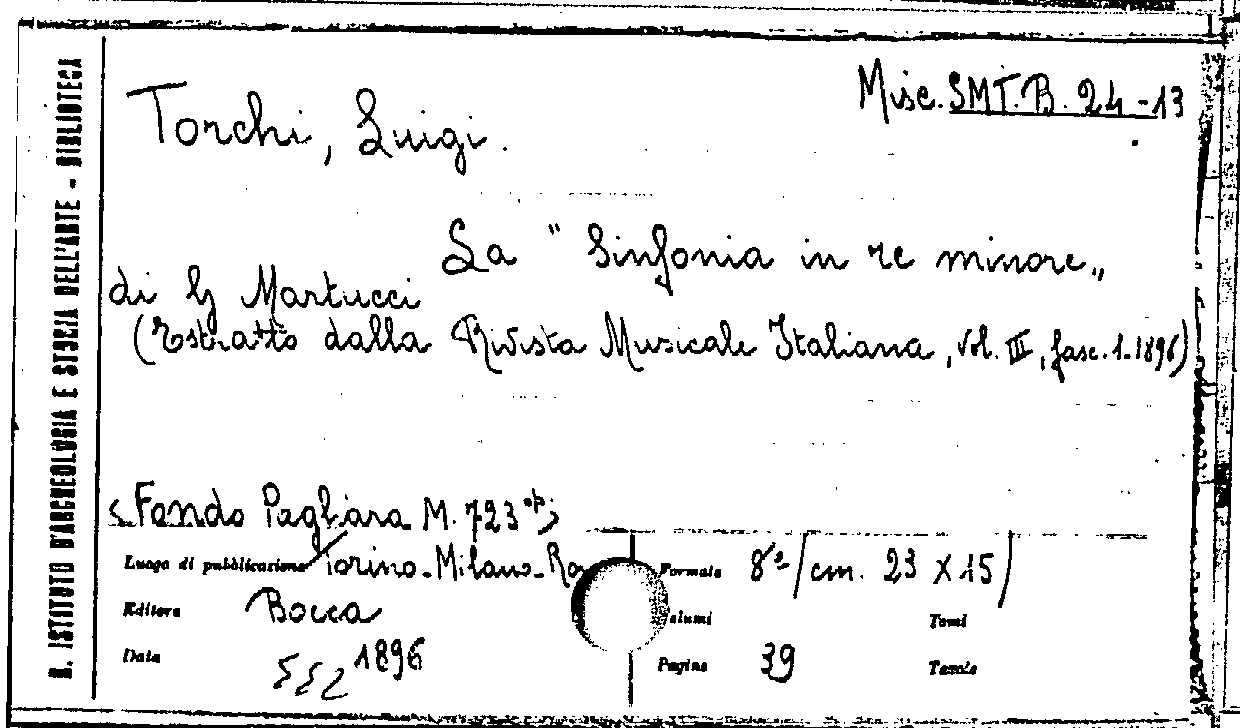 R. ISTITUTO D'ARCHEOLOGIA E STORIA DELL'ARTE - BIBLIOTECA
Misc. SMT. B. 24-13
Torchi, Luigi.
La "Sinfonia in re minore„
di G Martucci
(Estratto dalla Rivista Musicale Italiana, vol. III, fasc. 1. 1896)
Fondo Pagliara M. 723
Luogo di pubblicazione Torino-Milano-Ro
Formato 8º/cm. 23 x 15/
Editore Bocca
Volumi
Tomi
Data 1896
Pagine 39
Tavole